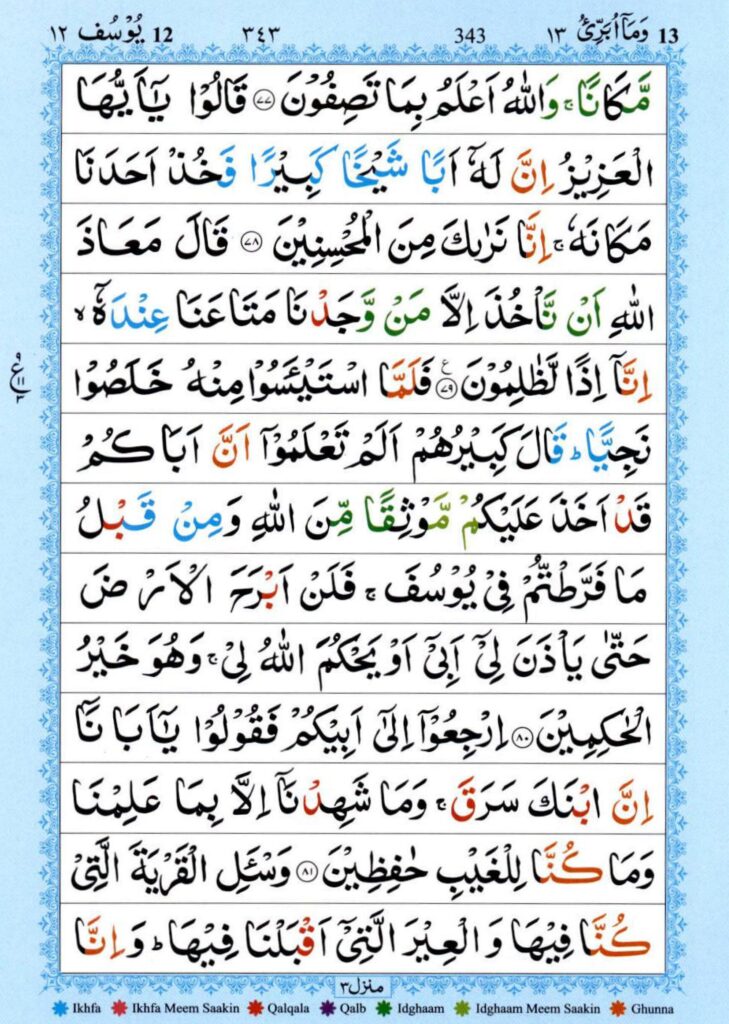 13 وَمَآ اُبَرِّئُ ١٣ 343 ٣٤٣ 12 يُوْسُف ١٢
مَّكَانًا ۚ وَاللّٰهُ اَعْلَمُ بِمَا تَصِفُوْنَ ۝٧٧ قَالُوْا يٰٓاَيُّهَا
الْعَزِيْزُ اِنَّ لَهٗٓ اَبًا شَيْخًا كَبِيْرًا فَخُذْ اَحَدَنَا
مَكَانَهٗ ۚ اِنَّا نَرٰىكَ مِنَ الْمُحْسِنِيْنَ ۝٧٨ قَالَ مَعَاذَ
اللّٰهِ اَنْ نَّاْخُذَ اِلَّا مَنْ وَّجَدْنَا مَتَاعَنَا عِنْدَهٗٓ ۙ
اِنَّآ اِذًا لَّظٰلِمُوْنَ ۝٧٩ ع فَلَمَّا اسْتَيْـَٔسُوْا مِنْهُ خَلَصُوْا
ع ١١ ٣
نَجِيًّا ؕ قَالَ كَبِيْرُهُمْ اَلَمْ تَعْلَمُوْٓا اَنَّ اَبَاكُمْ
قَدْ اَخَذَ عَلَيْكُمْ مَّوْثِقًا مِّنَ اللّٰهِ وَمِنْ قَبْلُ
مَا فَرَّطْتُّمْ فِيْ يُوْسُفَ ۚ فَلَنْ اَبْرَحَ الْاَرْضَ
حَتّٰى يَاْذَنَ لِيْٓ اَبِيْٓ اَوْ يَحْكُمَ اللّٰهُ لِيْ ۚ وَهُوَ خَيْرُ
الْحٰكِمِيْنَ ۝٨٠ اِرْجِعُوْٓا اِلٰٓى اَبِيْكُمْ فَقُوْلُوْا يٰٓاَبَانَآ
اِنَّ ابْنَكَ سَرَقَ ۚ وَمَا شَهِدْنَآ اِلَّا بِمَا عَلِمْنَا
وَمَا كُنَّا لِلْغَيْبِ حٰفِظِيْنَ ۝٨١ وَسْـَٔلِ الْقَرْيَةَ الَّتِيْ
كُنَّا فِيْهَا وَالْعِيْرَ الَّتِيْٓ اَقْبَلْنَا فِيْهَا ؕ وَاِنَّا
منزل ٣
Ikhfa Ikhfa Meem Saakin Qalqala Qalb Idghaam Idghaam Meem Saakin Ghunna